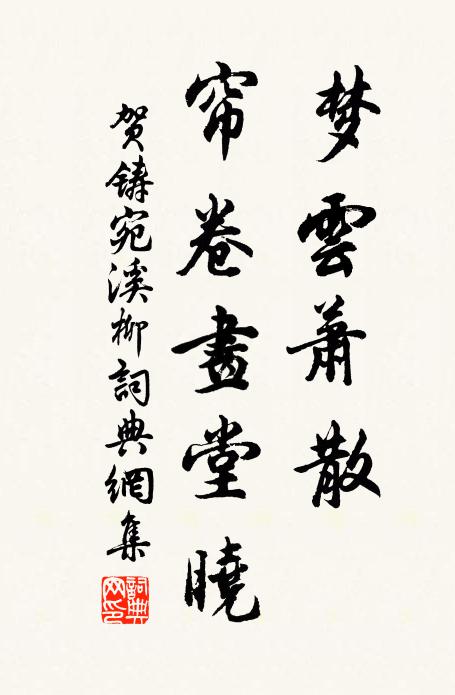 梦雲萧散
帘卷畫堂曉
贺鑄宛溪柳詞典網集
詞典网印